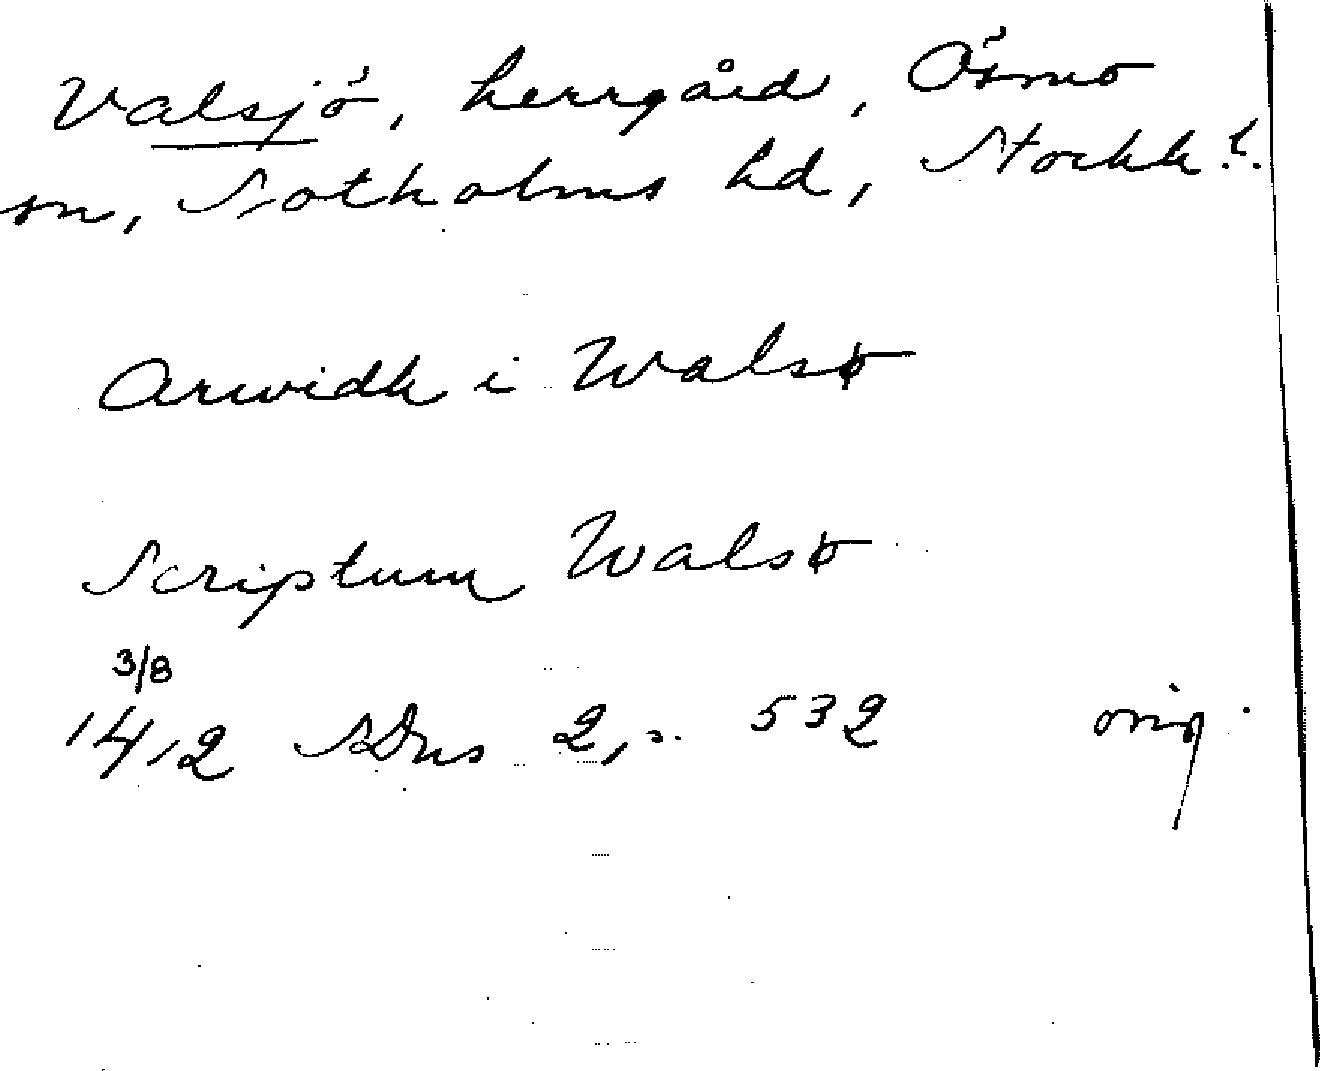 Valsjö, herrgård, Ösmo
sn, Sotholms hd, Stockh. l.
Arwidh i Walsø
Scriptum Walsø
3/8
1412 SDns 2, s. 532 orig.